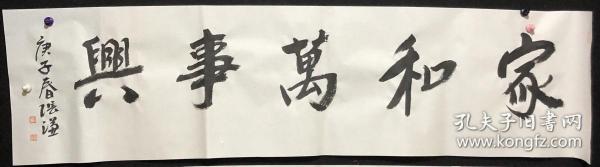 家和萬事興
庚子春張谦
孔夫子旧书网
www.kongfz.com